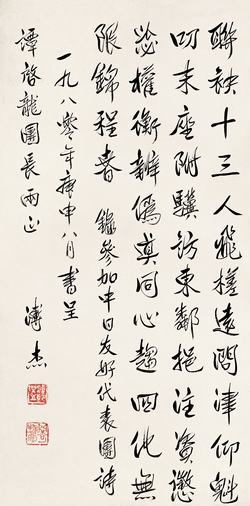 聯袂十三人飛槎遠問津仰魁
叨末座附驥訪東鄰挹注資懲
毖權衡辨僞真同心趨四化無
限錦程春 錄參加中日友好代表團詩
一九八零年庚申八月書呈
譚啓龍團長兩正
溥杰